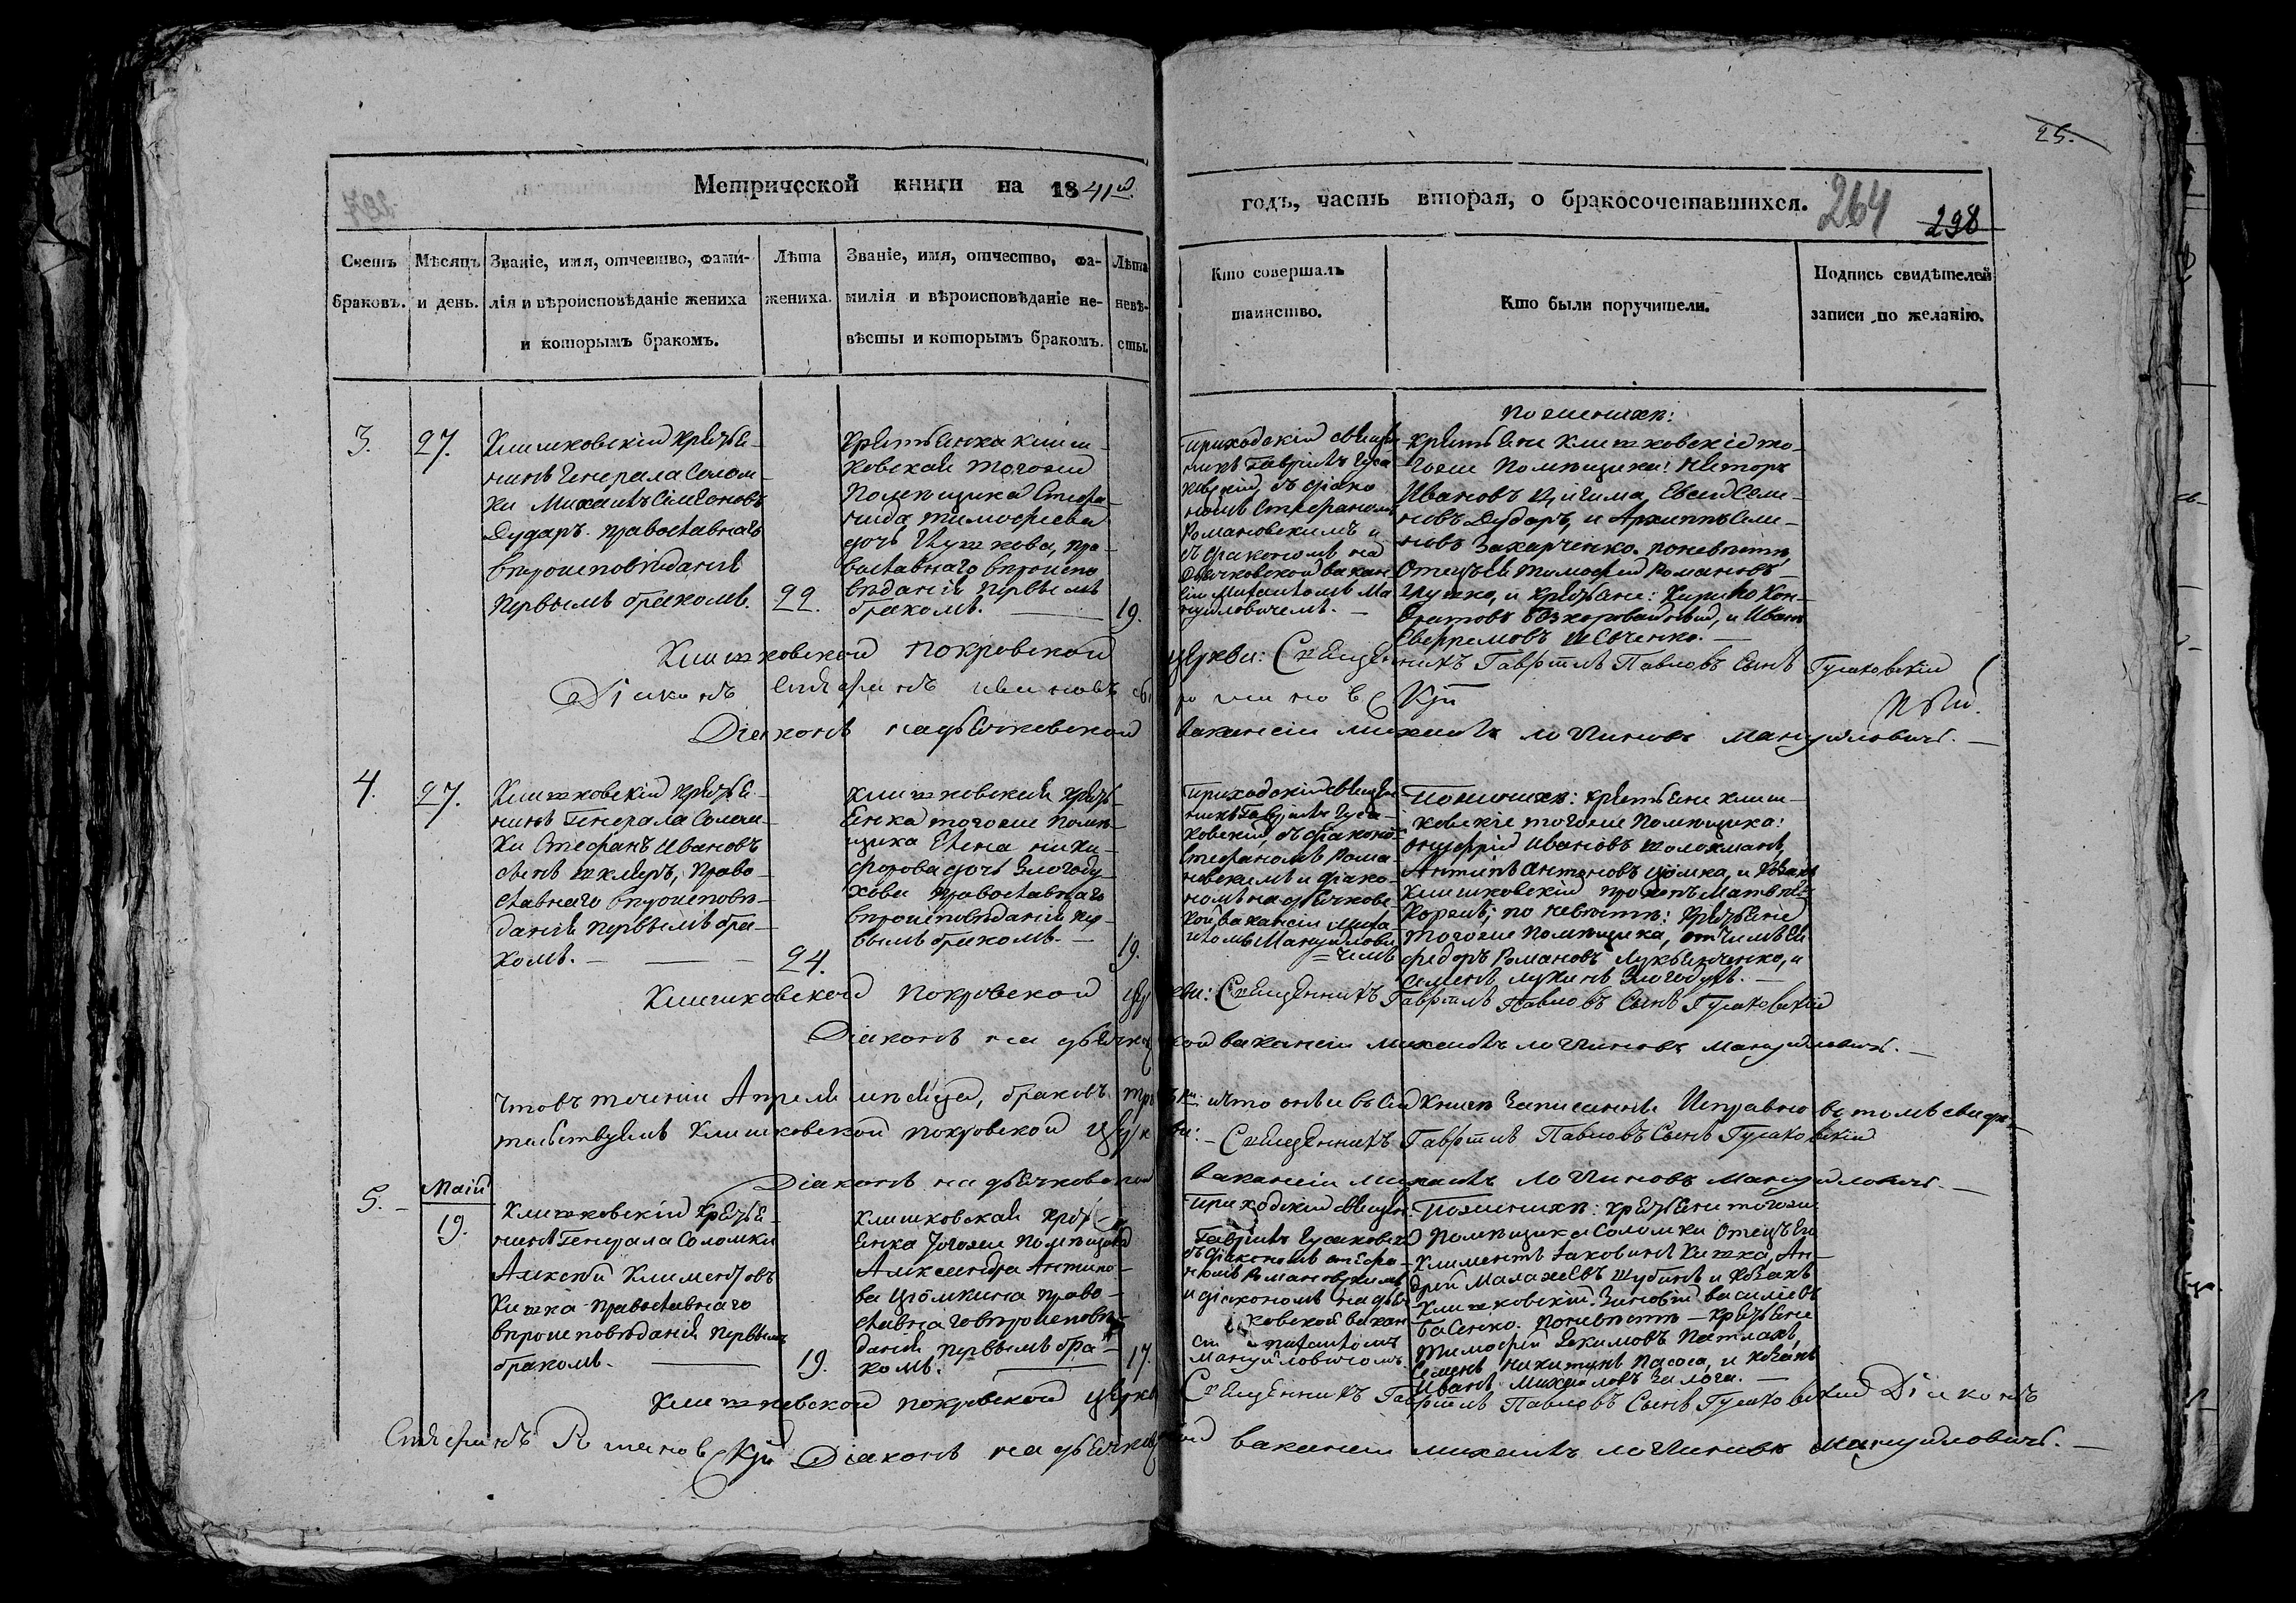 25.
Метрической книги на 1841й
годъ, часть вторая, о бракосочетавшихся.
264
298
Счетъ браковъ.
Мѣсяцъ и день.
Званіе, имя, отчество, фами-
лія и вѣроисповѣданіе жениха
и которымъ бракомъ.
Лѣта
жениха.
Званіе, имя, отчество, фа-
милія и вѣроисповѣданіе не-
вѣсты и которымъ бракомъ.
Лѣта
невѣ-
сты.
Кто совершалъ
таинство.
Кто были поручители.
Подпись свидѣтелей
записи по желанію.
3.
27.
Клишковскій крестья-
нинъ Генерала Солом-
ки Михаилъ Симеоновъ
Дударъ православнаго
вѣроисповѣданія
первымъ бракомъ.
22.
Крестьянка клиш-
ковская тогоже
помѣщика Стефа-
нида Тимофеева
дочь Глушкова, пра-
вославнаго вѣроиспо
вѣданія первымъ
бракомъ.
19.
Приходскій священ
никъ Гавріилъ Гуса
ковскій, съ діако
номъ Стефаномъ
Романовскимъ и
съ діакономъ на
дьячковской вакан
сіи Михаиломъ Ма
нуйловичемъ.
По женихѣ:
крестьяне клишковскіе то-
гоже помѣщика: Несторъ
Ивановъ Евсей Семе-
новъ Дударъ, и Архиппъ Семе-
новъ Захарченко. По невѣстѣ
Отецъ ея Тимофей Романовъ
Глушко, и крестьяне: Кирило Кон-
дратовъ и Иванъ
Ефремовъ Шевченко.
Клишковской Покровской церкви: Священникъ Гавріилъ Павловъ Сынъ Гусаковскій
Діаконъ Стефанъ Ивановъ Романовскій
Діаконъ на дьячковской вакансіи Михаилъ Логиновъ Мануйловичъ.
4.
27.
Клишковскій крестья-
нинъ Генерала Солом-
ки Стефанъ Ивановъ
сынъ Шкляръ, право-
славнаго вѣроисповѣ-
данія первымъ бра-
комъ.
24.
Клишковская кресть-
янка тогоже помѣ-
щика Елена Ники-
форова дочь Злогоду-
хова православнаго
вѣроисповѣданія пер-
вымъ бракомъ.
19.
Приходскій священ
никъ Гавріилъ Гуса-
ковскій, съ діакономъ
Стефаномъ Рома-
новскимъ и діако-
номъ на дьячковс-
кой вакансіи Миха-
иломъ Мануйлови-
чемъ
По женихѣ: крестьяне клиш-
ковскіе тогоже помѣщика:
Онуфрій Ивановъ
Антипъ Антоновъ Цюмка, и козакъ
клишковскій
по невѣстѣ: крестьяне
тогоже помѣщика, отчимъ ея
Федоръ Романовъ Лукьянченко, и
Семенъ Лукинъ Злогодухъ.
Клишковской Покровской церкви: Священникъ Гавріилъ Павловъ Сынъ Гусаковскій
Діаконъ на дьячковской вакансіи Михаилъ Логиновъ Мануйловичъ.
Что въ теченіи Апреля мѣсяца, браковъ и что они въ сей книгѣ записаны исправно въ томъ свидѣ-
тельствуемъ Клишковской Покровской церкви: Священникъ Гавріилъ Павловъ Сынъ Гусаковскій
Діаконъ на дьячковской вакансіи Михаилъ Логиновъ Мануйловичъ.
5.
Маія
19.
Клишковскій крестья-
нинъ Генерала Соломки
Алексѣй Климентовъ
Кишка православнаго
вѣроисповѣданія первымъ
бракомъ.
19.
Клишковская кресть-
янка тогоже помѣщика
Александра Антипо-
ва Цюмкина право-
славнаго вѣроисповѣ-
данія первымъ бра-
комъ.
17.
Приходскій священ.
Гавріилъ Гусаковскій
съ діакономъ Стефа-
номъ Романовскимъ
и діакономъ на дья-
чковской вакан
сіи Михаиломъ
Мануйловичомъ.
По женихѣ: крестьяне тогоже
помѣщика Соломки Отецъ его
Климентъ Яковинъ Кишка, Ан-
дрей Малахеевъ Шубинъ и козакъ
клишковскій Зиновій Василіевъ
Басенко. По невѣстѣ крестьяне
Тимофей Екимовъ Патлахъ,
Семенъ Никитинъ Пасоса, и козакъ
Иванъ Михайловъ Залога.
Клишковской Покровской церкви Священникъ Гавріилъ Павловъ Сынъ Гусаковскій Діаконъ
Стефанъ Романовскій Діаконъ на дьячковской вакансіи Михаилъ Логиновъ Мануйловичъ.